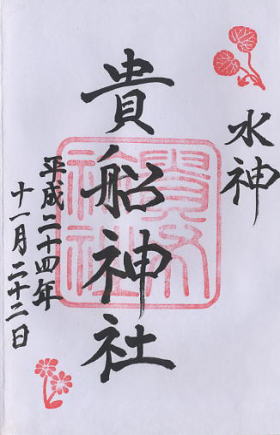 水神
貴船神社
平成二十四年
十一月二十二日